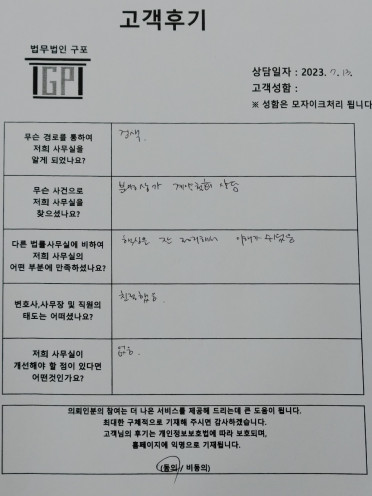 고객후기
법무법인 구포
GP
상담일자 : 2023. 7. 13.
고객성함 :
※ 성함은 모자이크처리 됩니다
무슨 경로를 통하여
저희 사무실을
알게 되었나요?
검색.
무슨 사건으로
저희 사무실을
찾으셨나요?
분양상가 계약철회 상담
다른 법률사무실에 비하여
저희 사무실의
어떤 부분에 만족하셨나요?
핵심을 잘 이해가 쉬웠음
변호사,사무장 및 직원의
태도는 어떠셨나요?
친절했음
저희 사무실이
개선해야 할 점이 있다면
어떤것인가요?
없음.
의뢰인분의 참여는 더 나은 서비스를 제공해 드리는데 큰 도움이 됩니다.
최대한 구체적으로 기재해 주시면 감사하겠습니다.
고객님의 후기는 개인정보보호법에 따라 보호되며,
홈페이지에 익명으로 기재됩니다.
(동의 / 비동의)